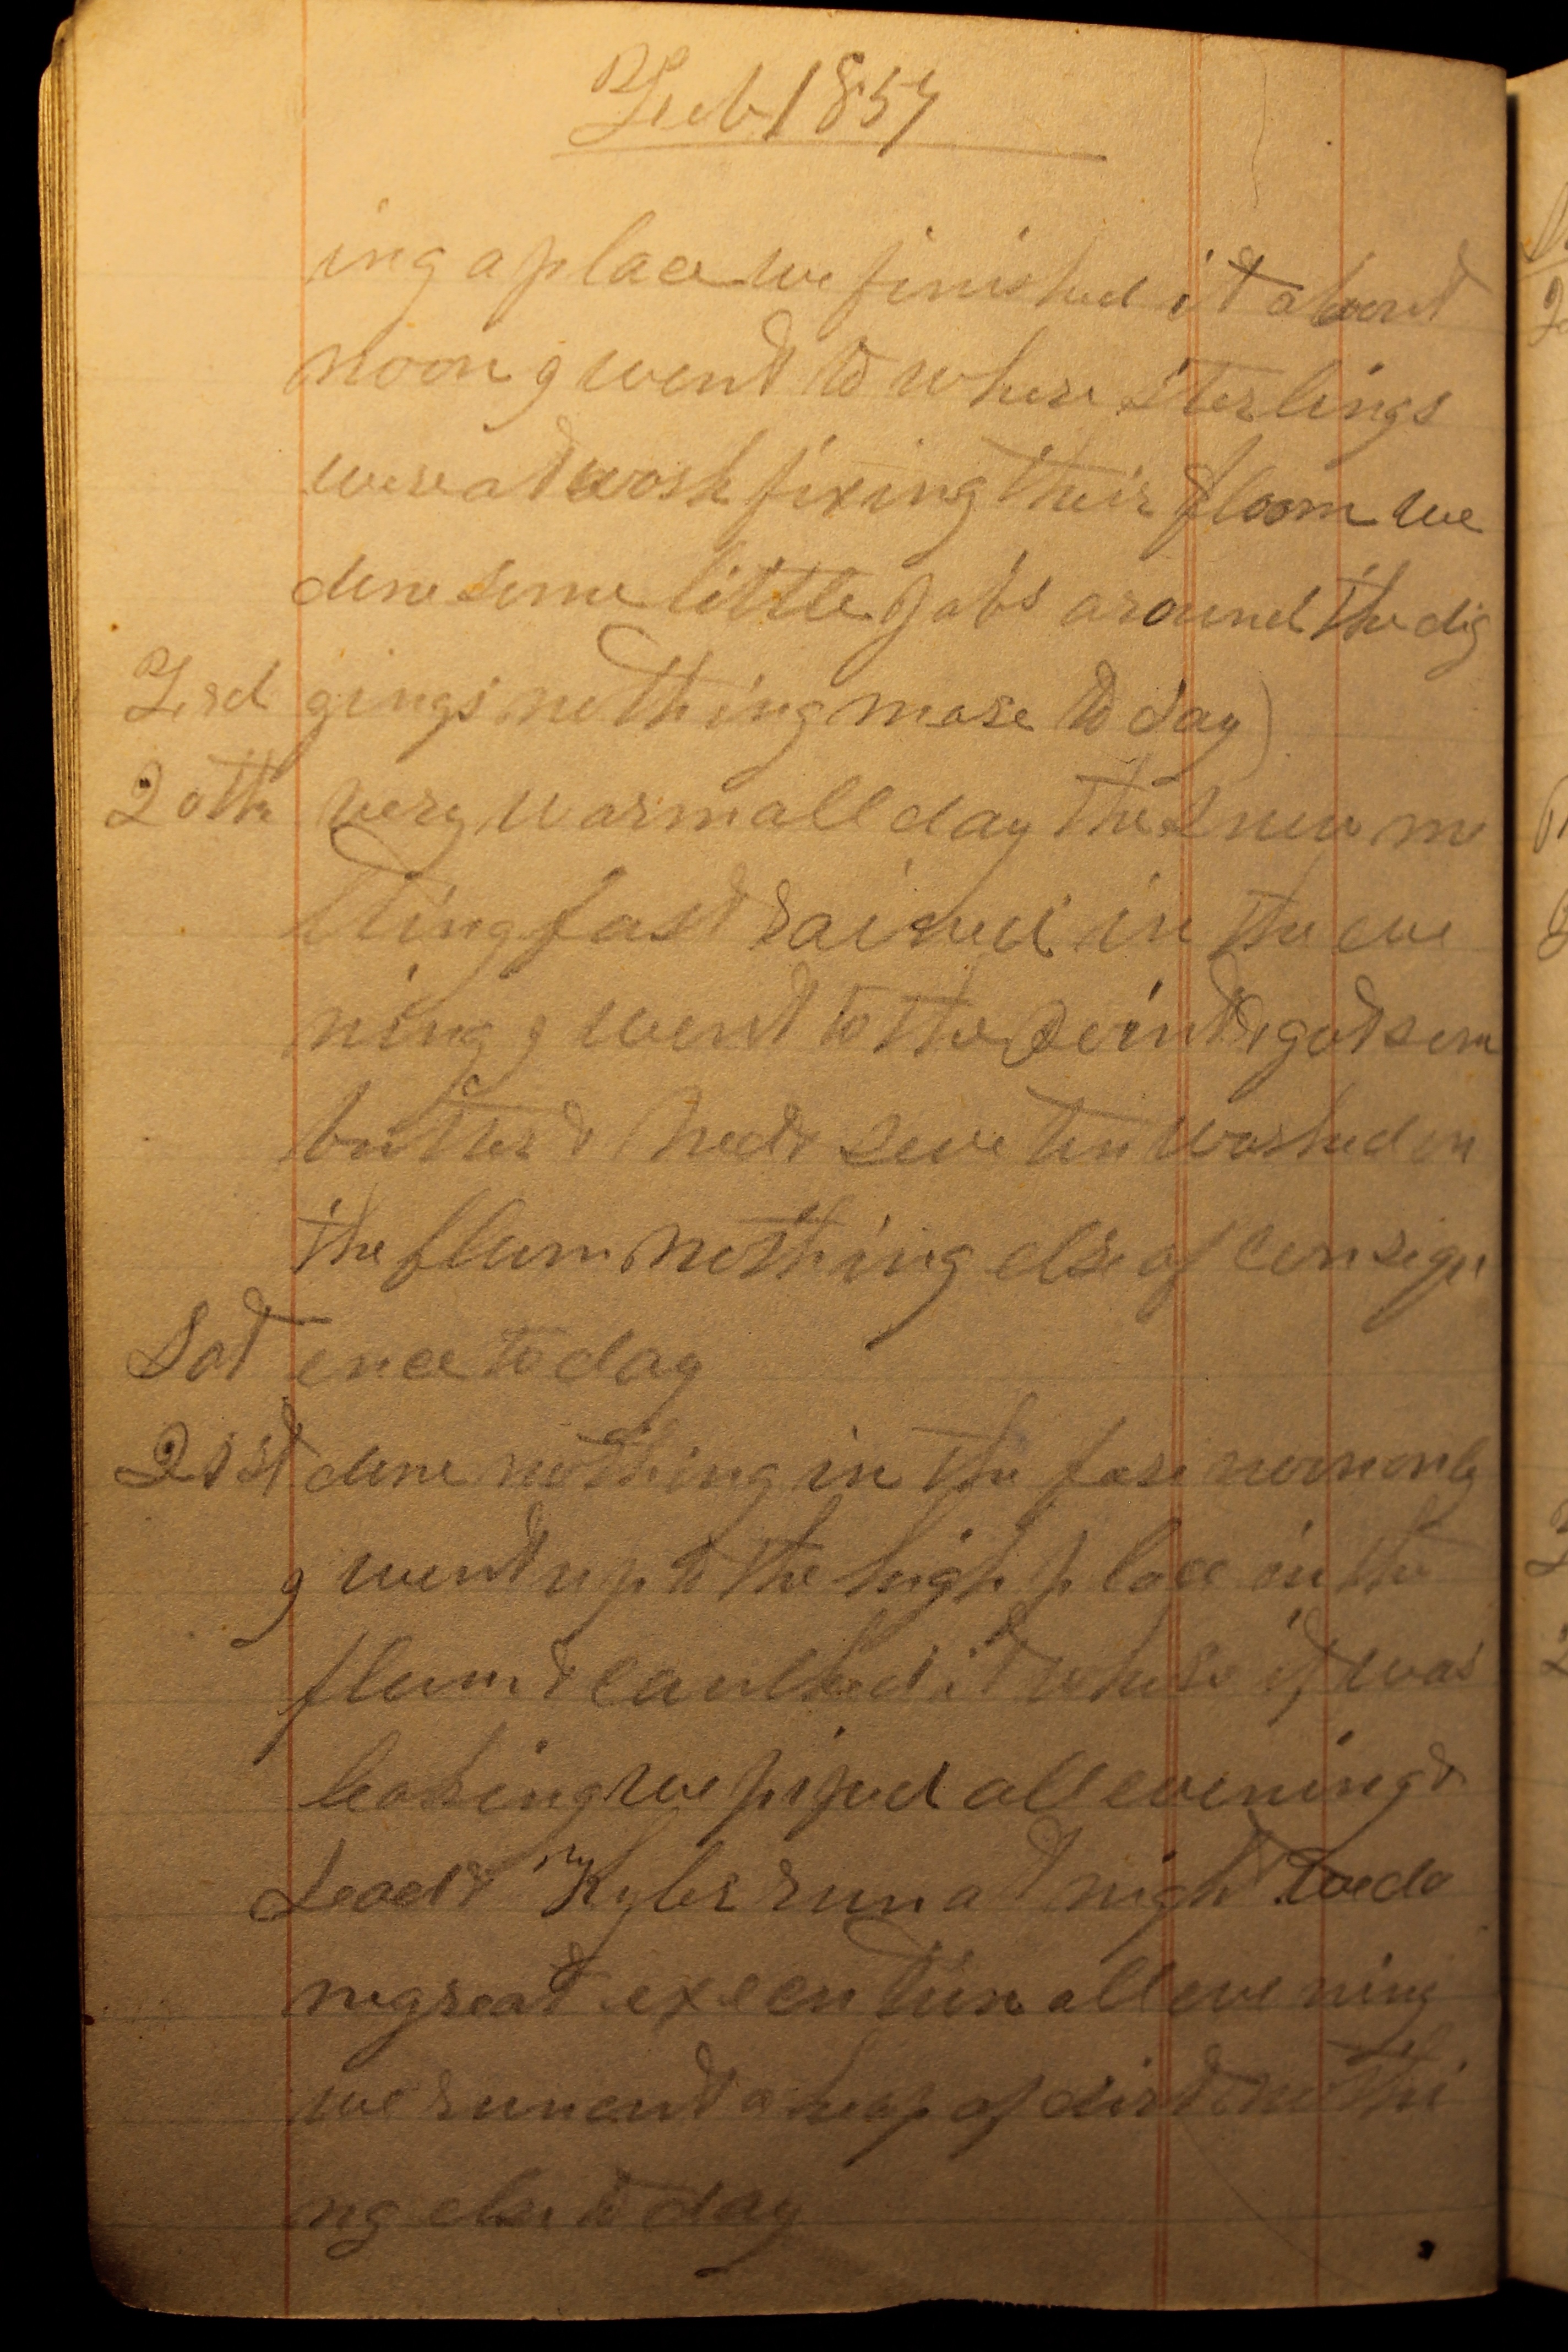 Feb 1857
ing a place we finished it about
noon I went to where Sterlings
were at work fixing their floom we
done some little jobs around the dig
Frd gings nothing more to day
20th very warm all day the snow me
lting fast rained in the eve
ning I went to the Point & got som
butter & Ned & Seve ten washed on
the flum nothing else of consequ
Sat ence to day
21st done nothing in the fore noon only
I went up to the high place in the
flum & caulked it where it was
leaking we piped all evening &
Lead & Kyler run at night we do
ne great execution all eve ning
we run out a heap of dirt nothi
ng else to day